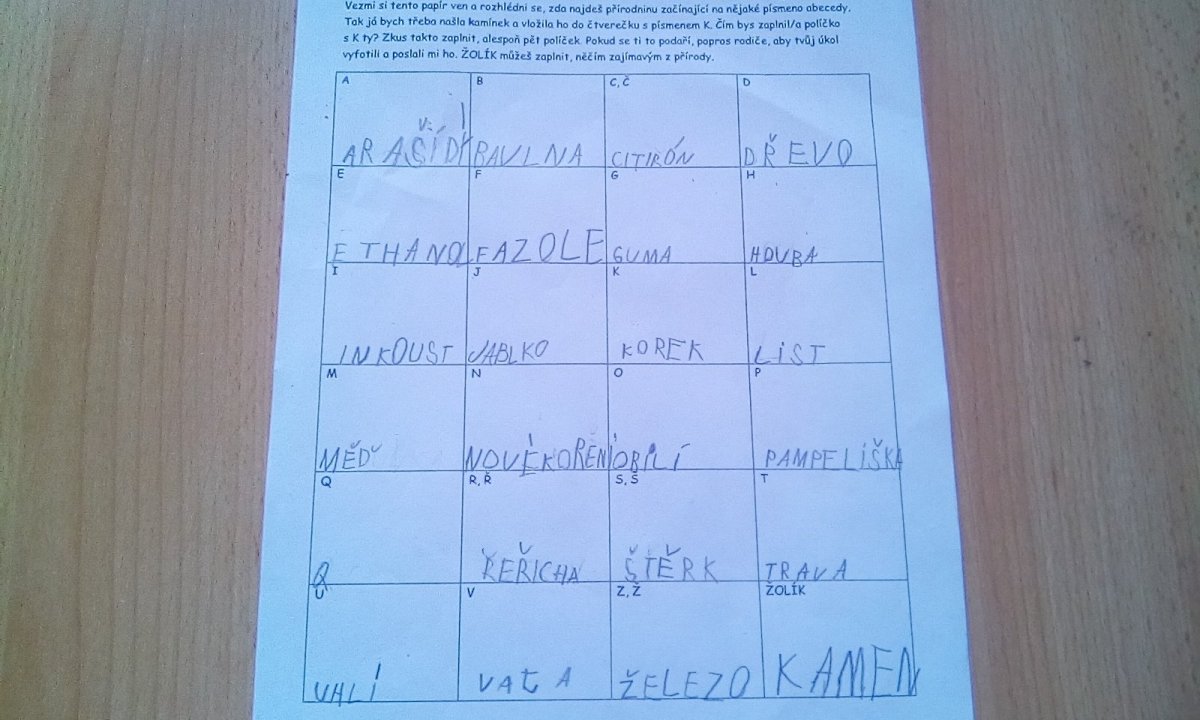 Vezmi si tento papír ven a rozhlédni se, zda najdeš přírodninu začínající na nějaké písmeno abecedy.
Tak já bych třeba našla kamínek a vložila ho do čtverečku s písmenem K. Čím bys zaplnil/a políčko
s K ty? Zkus takto zaplnit, alespoň pět políček. Pokud se ti to podaří, popros rodiče, aby tvůj úkol
vyfotili a poslali mi ho. ŽOLÍK můžeš zaplnit, něčím zajímavým z přírody.
A B C, Č D
ARAŠÍDY BAVLNA CITIRÓN DŘEVO
E F G H
ETHANOL FAZOLE GUMA HOUBA
I J K L
INKOUST JABLKO KOREK LiST
M N O P
MĚĎ NOVÉKOŘENÍ OBILÍ PAMPELiŠKA
Q R, Ř S, Š T
Q ŘEŘICHA ŠTĚRK TRAVA
U V Z, Ž ŽOLÍK
UHLÍ VATA ŽELEZO KAMEN